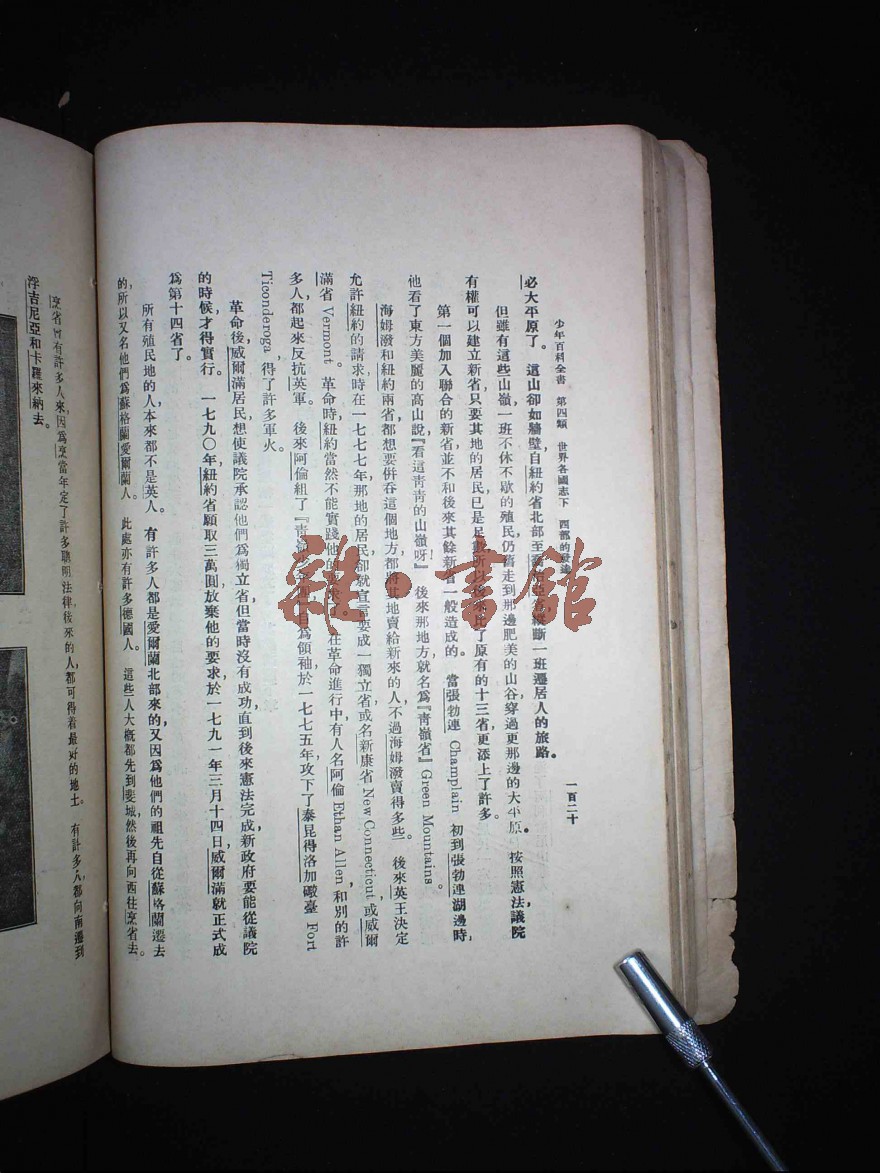 少年百科全書　第四類　世界各國志下　西部的發達　一百二十
必大平原了。　這山卻如牆壁,自紐約省北部至喬治亞爲縱斷一班遷居人的旅路。
但雖有這些山嶺,一班不休不歇的殖民,仍舊走到那邊肥美的山谷,穿過更那邊的大平原。　按照憲法,議院
有權可以建立新省,只要其地的居民已是足數,所以後來比了原有的十三省更添上了許多。
第一個加入聯合的新省,並不和後來其餘新省一般造成的。　當張勃連 Champlain 初到張勃連湖邊時,
他看了東方美麗的高山說『看這青青的山嶺呀!』　後來那地方就名爲『青嶺省』Green Mountains。
海姆潑和紐約兩省,都想要併吞這個地方,都將其地賣給新來的人,不過海姆潑賣得多些。　後來英王決定
允許紐約的請求,時在一七七七年,那地的居民,卻就宣言要成一獨立省,或名新康省 New Connecticut 或威爾
滿省 Vermont。　革命時,紐約當然不能實踐他的要求。　在革命進行中,有人名阿倫 Ethan Allen,和別的許
多人,都起來反抗英軍。　後來阿倫組了『青嶺少年團』自爲領袖,於一七七五年攻下了泰昆得洛加礮臺 Fort
Ticonderoga,得了許多軍火。
革命後,威爾滿居民,想使議院承認他們爲獨立省,但當時沒有成功,直到後來憲法完成,新政府要能從議院
的時候,才得實行。　一七九〇年,紐約省願取三萬圓放棄他的要求,於一七九一年三月十四日,威爾滿就正式成
爲第十四省了。
所有殖民地的人,本來都不是英人。　有許多人都是愛爾蘭北部來的,又因爲他們的祖先自從蘇格蘭遷去
的,所以又名他們爲蘇格蘭愛爾蘭人。　此處亦有許多德國人。　這些人大概都先到斐城,然後再向西往烹省去。
烹省曾有許多人來,因爲烹當年定了許多聰明法律,後來的人,都可得着最好的地土。　有許多人,都向南遷到
浮吉尼亞和卡羅來納去。
雜·書館